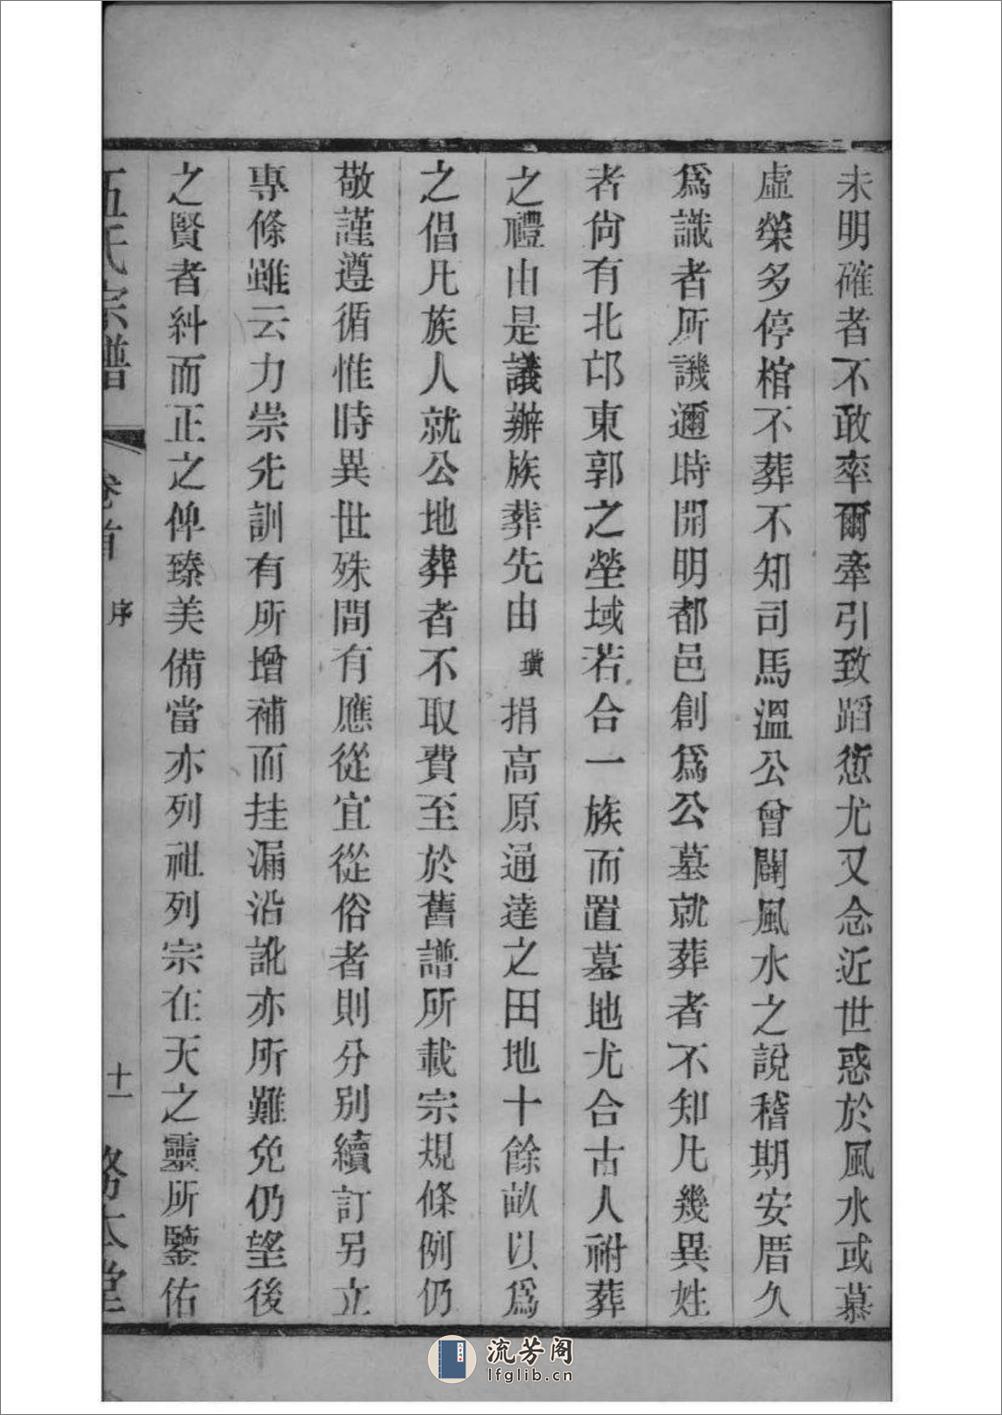 未明確者不敢率爾牽引致蹈愆尤又念近世惑於風水或慕
虛榮多停棺不葬不知司馬溫公曾闢風水之說稽期安厝久
爲識者所譏邇時開明都邑創爲公墓就葬者不知凡幾異姓
者尙有北邙東郭之塋域若合一族而置墓地尤合古人祔葬
之禮由是議辦族葬先由璜捐高原通達之田地十餘畝以爲
之倡凡族人就公地葬者不取費至於舊譜所載宗規條例仍
敬謹遵循惟時異世殊間有應從宜從俗者則分別續訂另立
專條雖云力崇先訓有所增補而挂漏沿訛亦所難免仍望後
之賢者糾而正之俾臻美備當亦列祖列宗在天之靈所鑒佑
伍氏宗譜 卷首 序 十一 務本堂
流芳阁
lfglib.cn